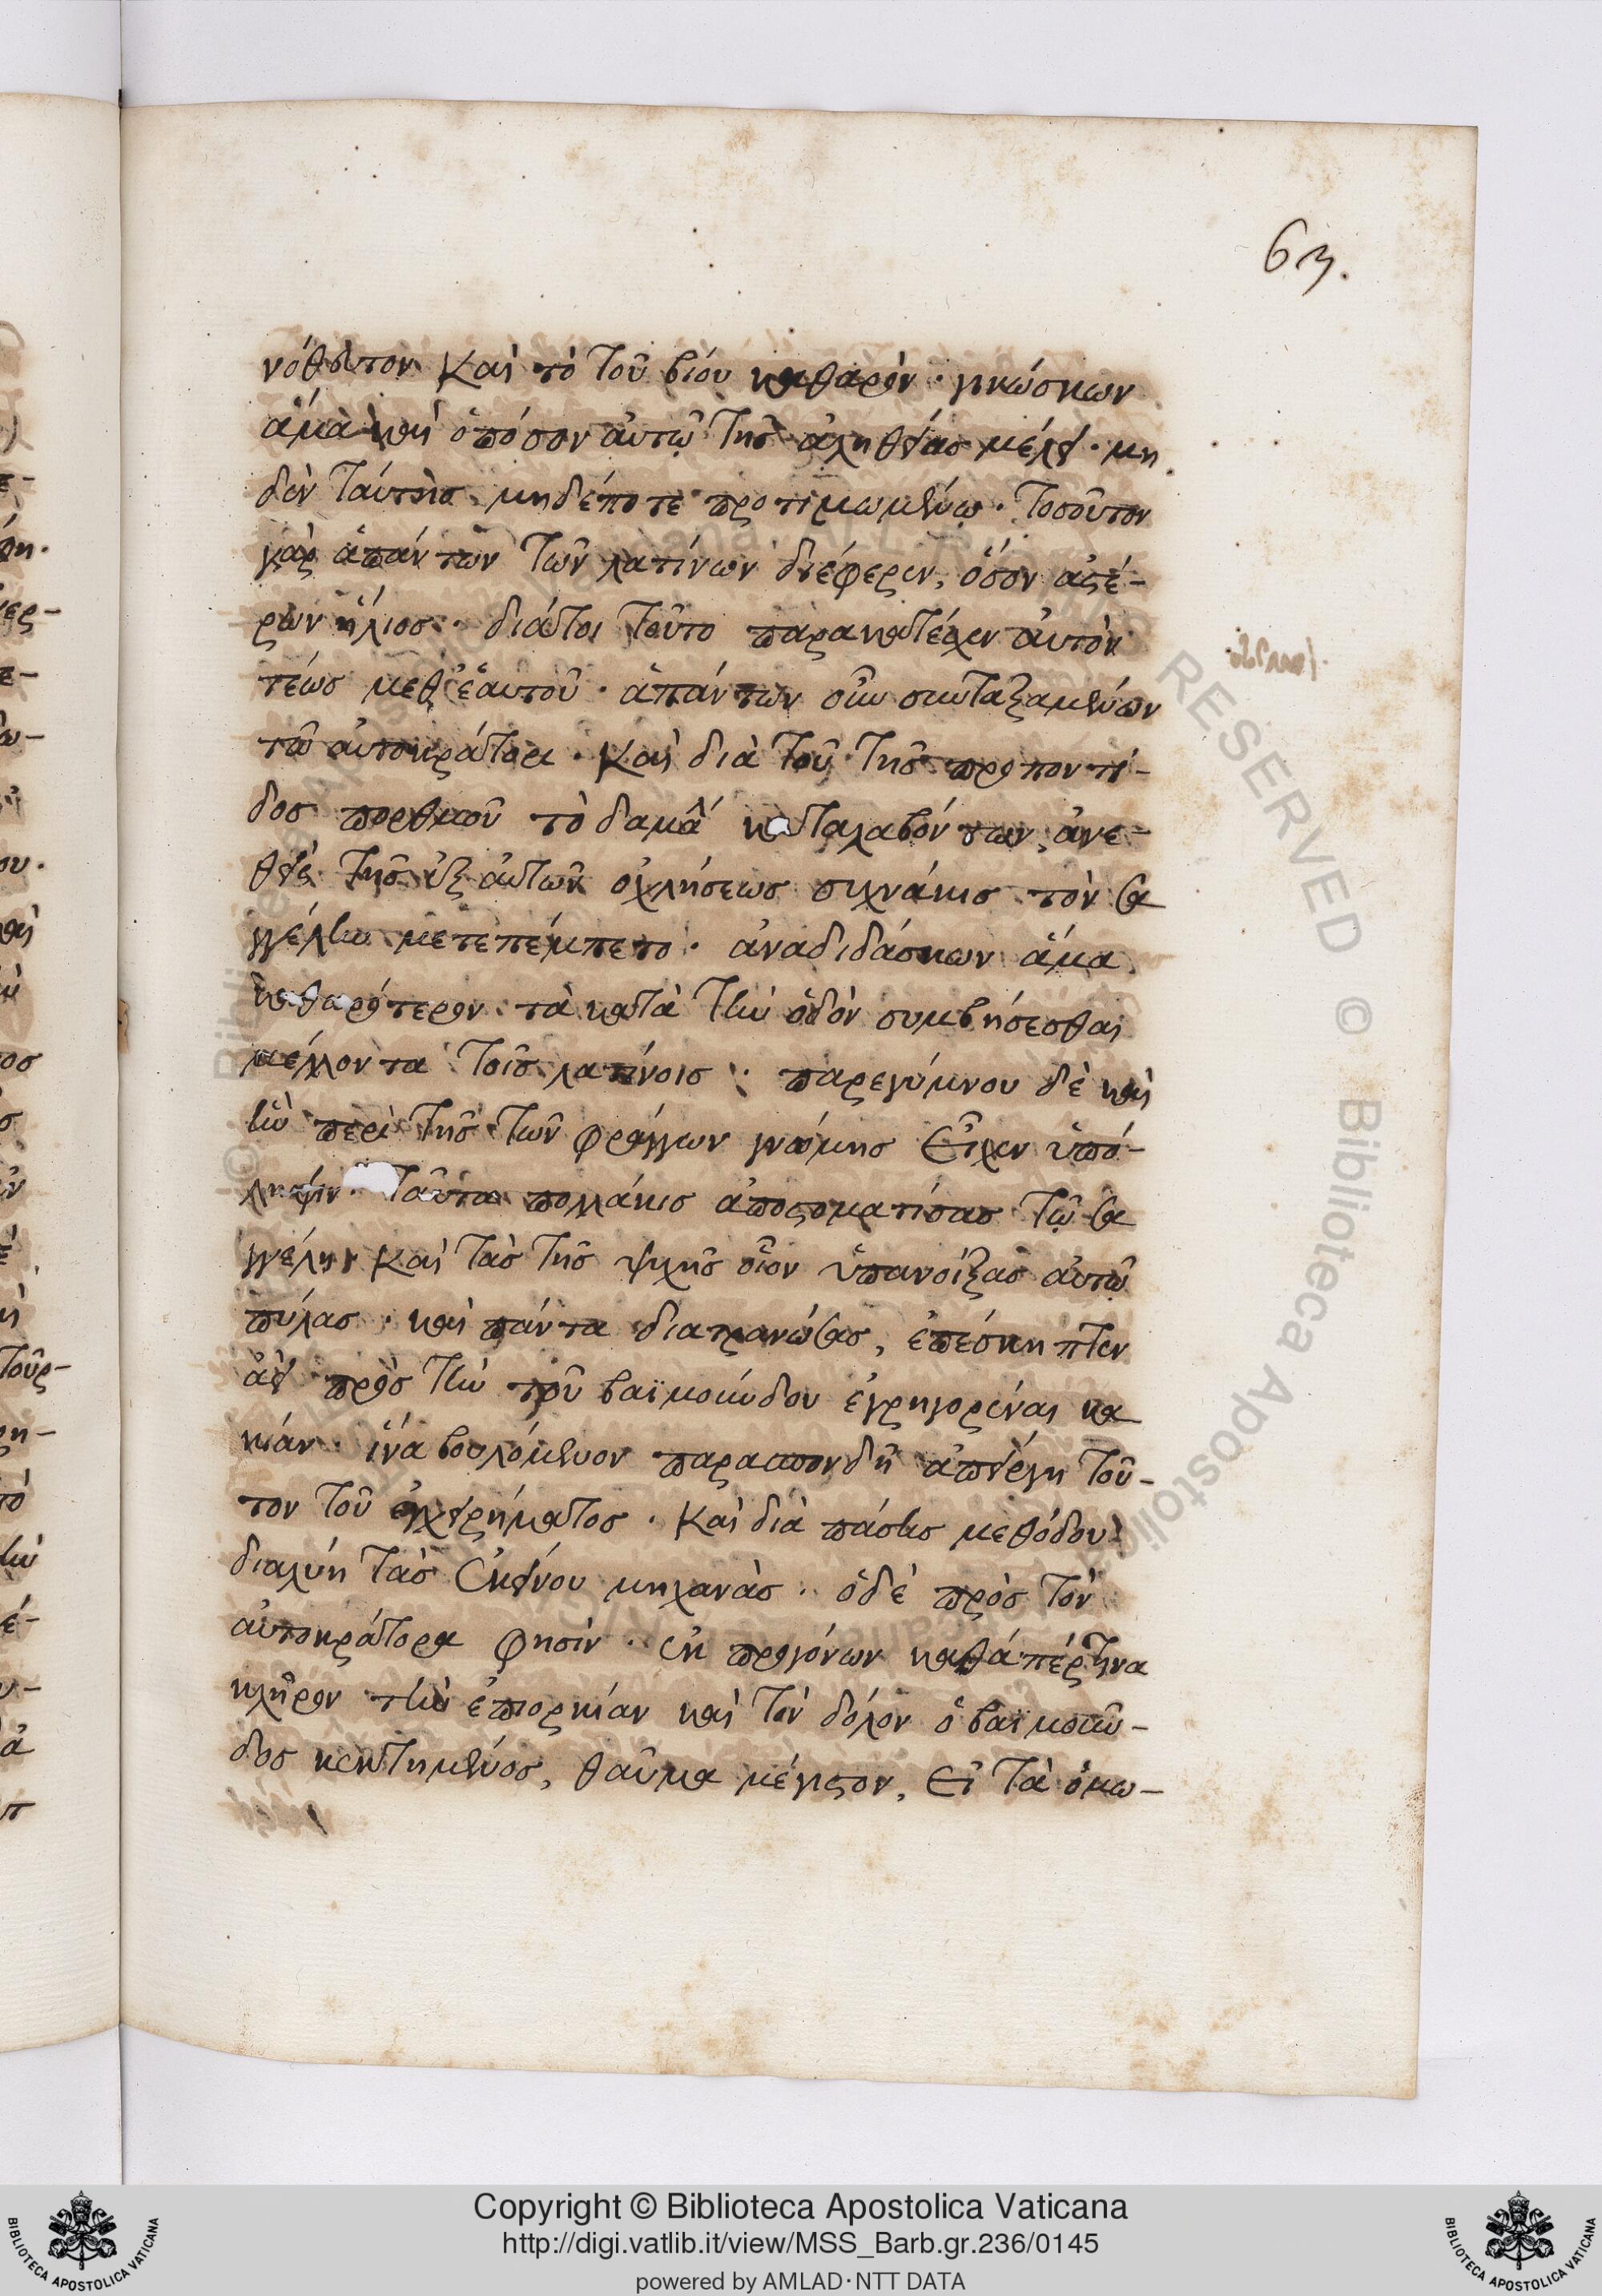 63.
νόθευτον καὶ τὸ τοῦ βίου καθαρόν· γινώσκων
ἅμα καὶ ὁπόσον αὐτῷ τῆς ἀληθείας μέλει· μη
δὲν ταύτης μηδέποτε προτιμωμένῳ· τοσοῦτον
γὰρ ἁπάντων τῶν λατίνων διέφερεν, ὅσον ἀστέ-
ρων ἥλιος· διάτοι τοῦτο παρακατέχεν αὐτὸν
τέως μεθ' ἑαυτοῦ· ἁπάντων οὖν συνταξαμένων
τῷ αὐτοκράτορι· καὶ διὰ τοῦ τῆς προποντί-
δος πορθμοῦ τὸ δαμαλ καταλαβόντων, ἀνε-
θεὶς τῆς ἐξ αὐτῶν ὀχλήσεως συχνάκις τὸν σα
γγέλην μετεπέμπετο· ἀναδιδάσκων ἅμα
καθαρότερον τὰ κατὰ τὴν ὁδὸν συμβήσεσθαι
μέλλοντα τοῖς λατίνοις· παρεγύμνου δὲ καὶ
ἣν περὶ τῆς τῶν φράγγων γνώμης εἶχεν ὑπό-
ληψιν· ταῦτα πολλάκις ἀποστοματίσας τῷ σα
γγέλῃ καὶ τὰς τῆς ψυχῆς οἷον ὑπανοίξας αὐτῷ
πύλας· καὶ πάντα διατρανώσας, ἐπέσκηπτεν
ἀεὶ πρὸς τὴν τοῦ βαϊμούνδου ἐγρηγορέναι κα
κίαν· ἵνα βουλόμενον παρασπονδῆ ἀπείργῃ τοῦ-
τον τοῦ ἐγχειρήματος· καὶ διὰ πάσης μεθόδου
διαλύῃ τὰς ἐκείνου μηχανάς· ὁ δὲ πρὸς τὸν
αὐτοκράτορα φησὶν· ἐκ προγόνων καθάπέρ τινα
κλῆρον τὴν ἐπιορκίαν καὶ τὸν δόλον ὁ βαϊμοῦν-
δος κεκτημένος, θαῦμα μέγιστον, εἰ τὰ ὀμω-
Copyright © Biblioteca Apostolica Vaticana
http://digi.vatlib.it/view/MSS_Barb.gr.236/0145
powered by AMLAD·NTT DATA